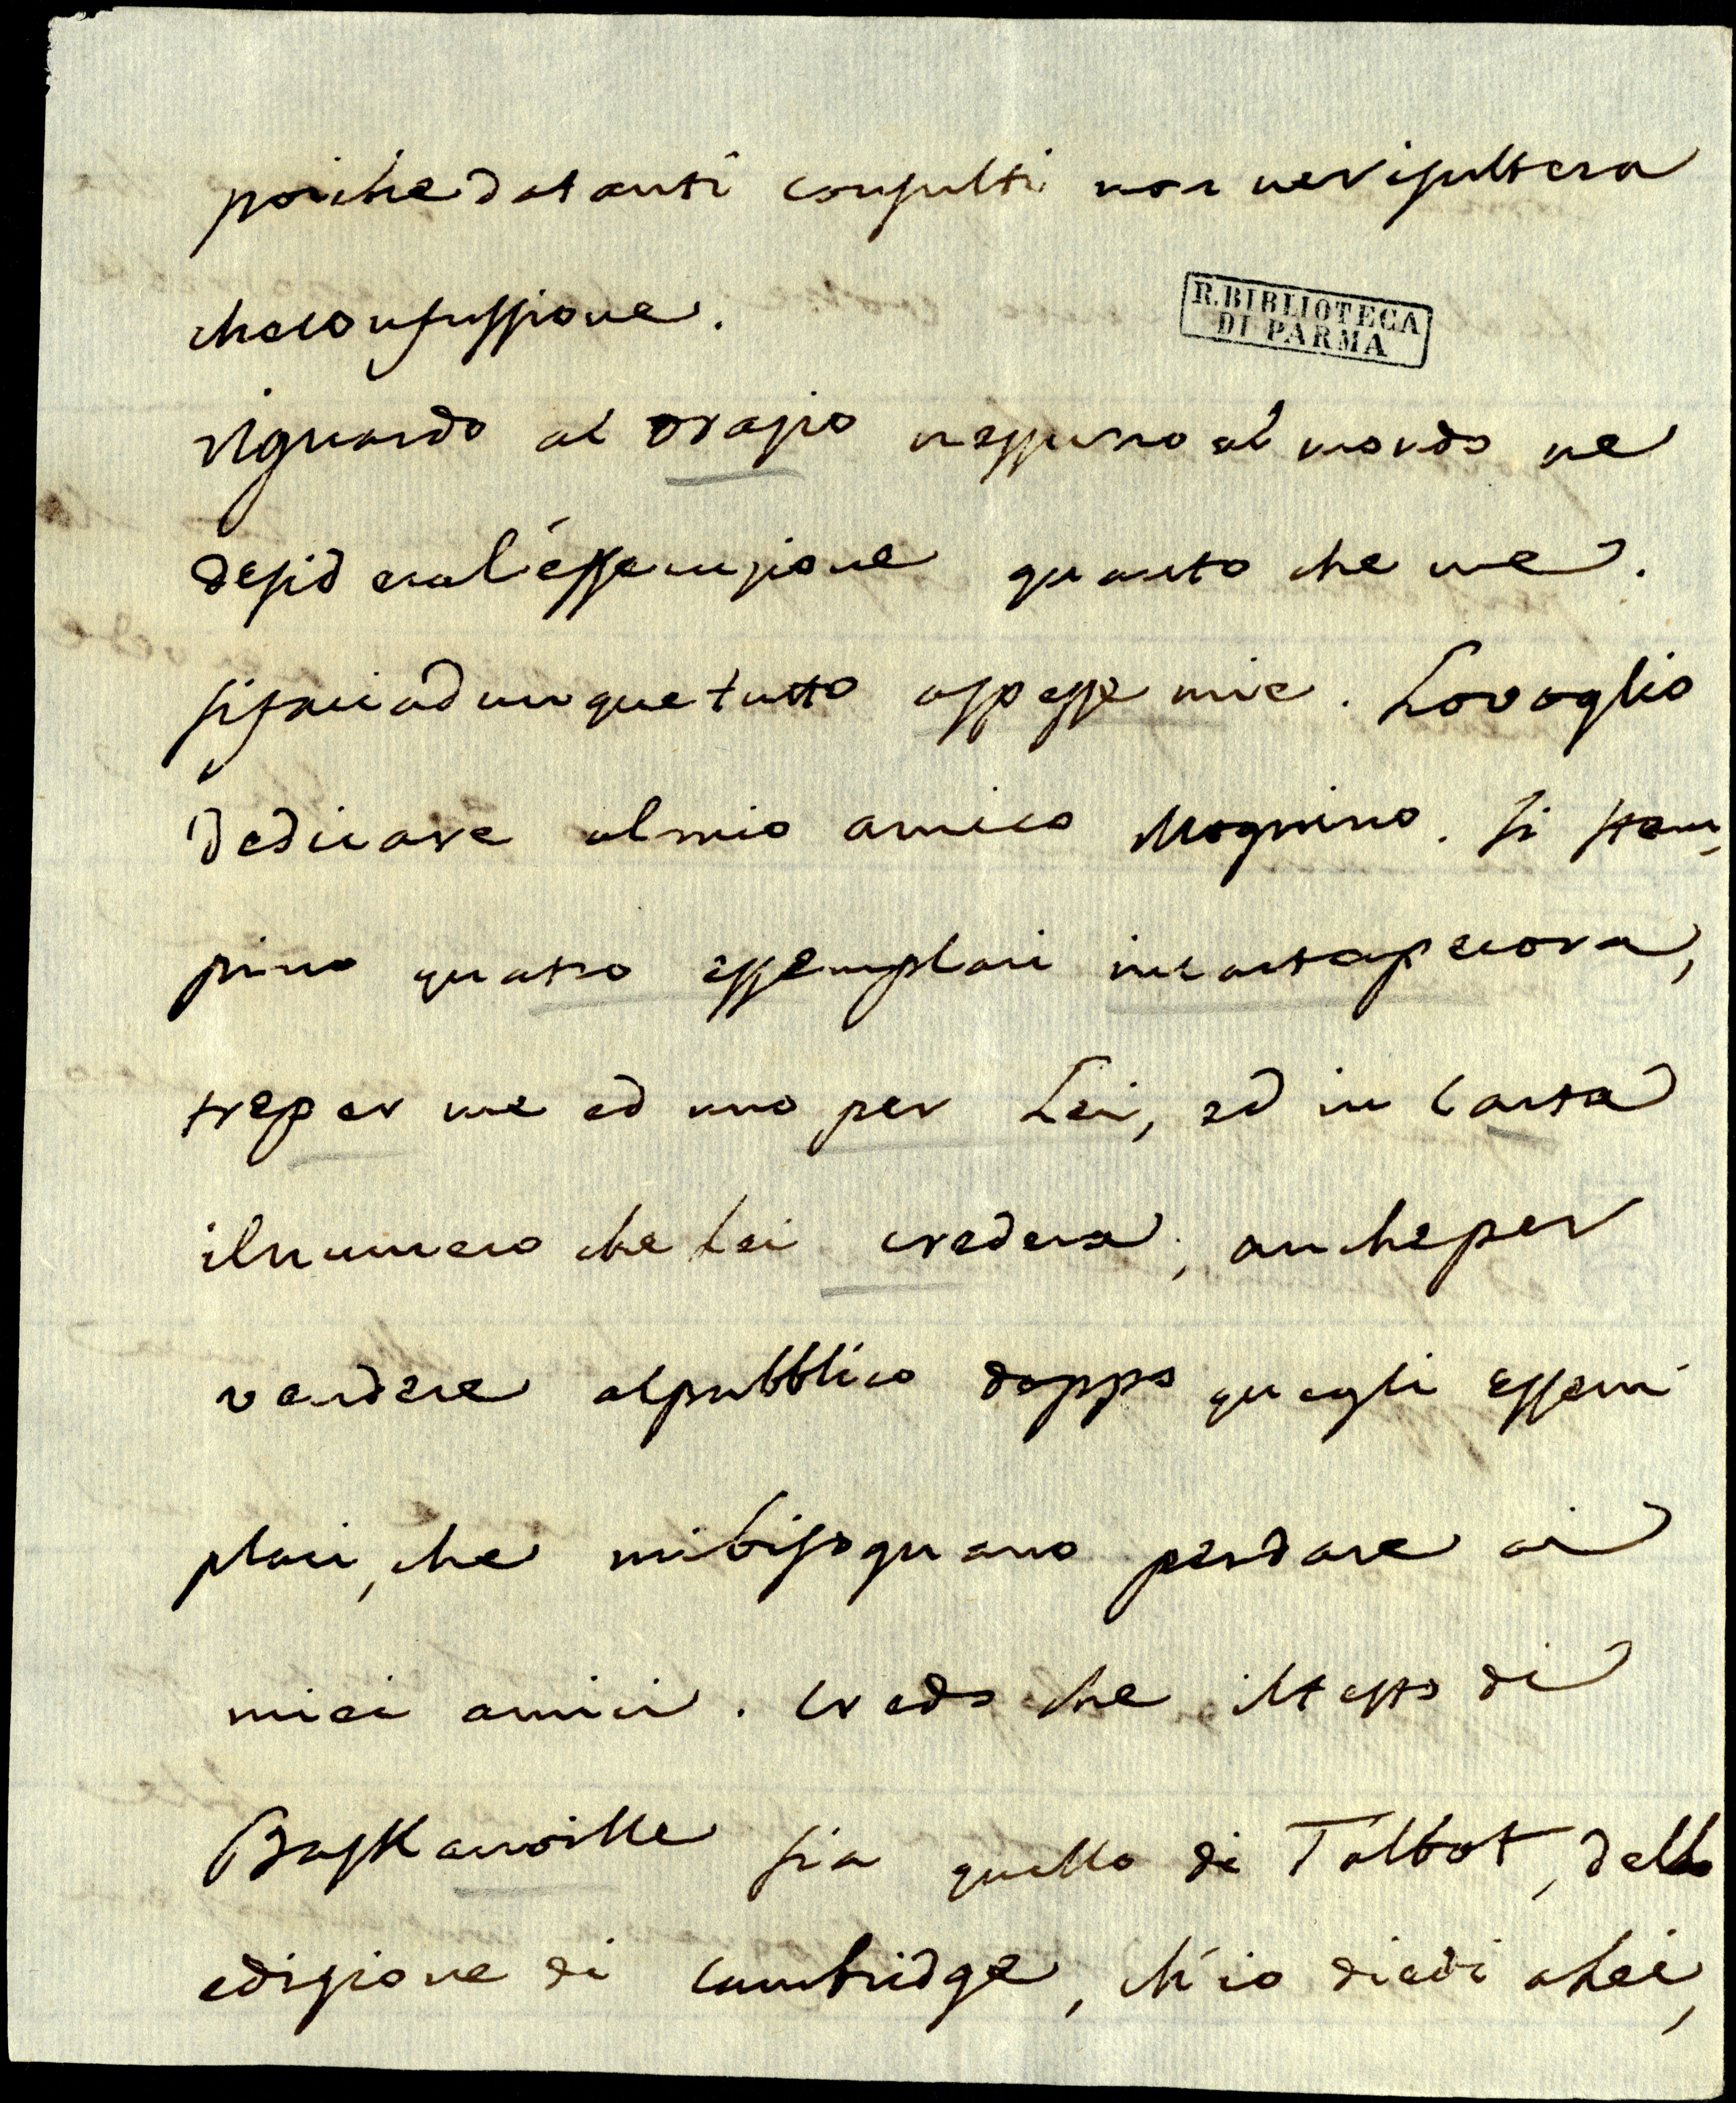 poiche da tanti consulti non ne risultera
che confussione.
R. BIBLIOTECA
DI PARMA
riguardo al orazio nessuno al mondo ne
desidera l'essecuzione quanto che me.
si facci adunque tutto asspesse mie. Lo voglio
dedicare al mio amico Mognino. si stam,
pino quatro essemplari in carta pecora,
tre per me ed uno per Lei, ed in Carta
il numero che Lei credera, anche per
vendere al pubblico doppo quegli essem
plari, che mi bisognano per dare ai
miei amici. Credo che il testo di
Baskanville sia quello di Talbot, della
edizione di Cambridge, ch'io diedi a Lei,